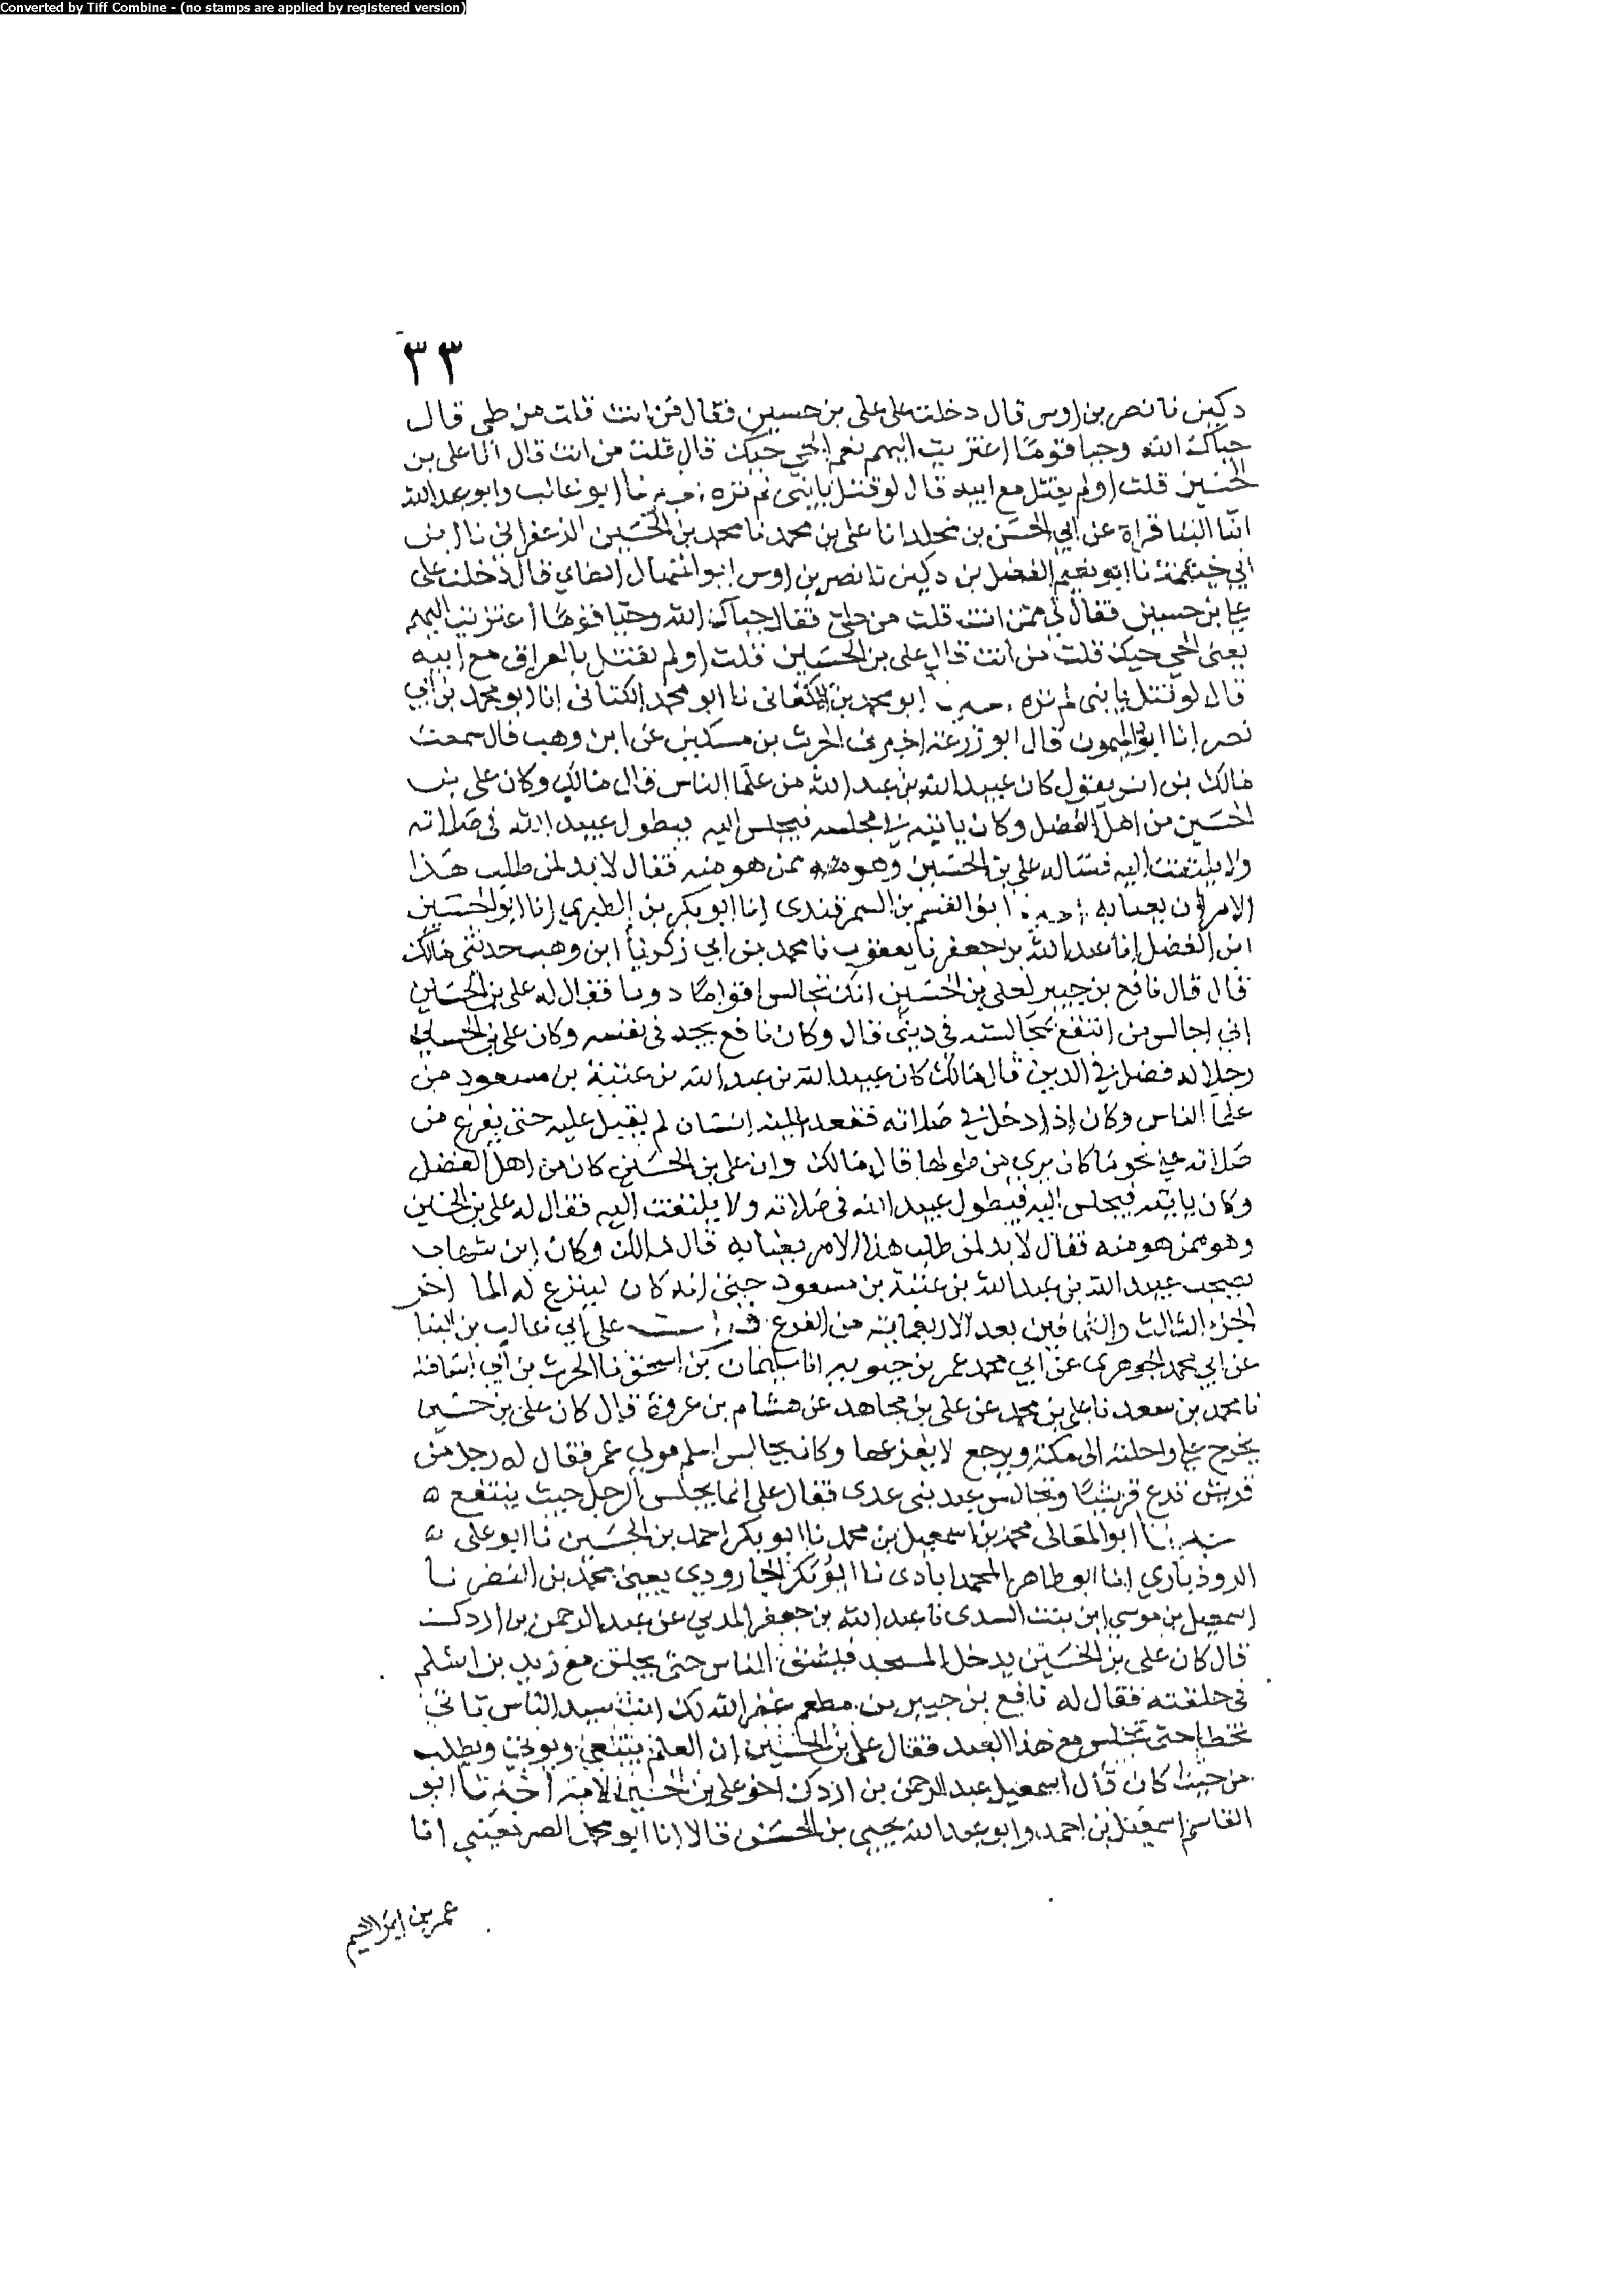 Converted by Tiff Combine - (no stamps are applied by registered version)
٣٣
دكين نا نصر بن اوس قال دخلت على على بن حسين فقال فمن انت قلت من طي قال
حياك الله وحيا قوما اعتزيت اليهم نعم الحي حيك قال قلت من انت قال انا على بن
الحسين قلت اولم يقتل مع ابيه قال لو قتل يا بنى لم تره نا ابو غالب وابو عبد الله
ابنا البنا قراة عن ابي الحسن بن مخلد انا على بن محمد نا محمد بن الحسين الزعفراني نا ابن
ابي خيثمة نا ابو نعيم الفضل بن دكين نا نصر بن اوس ابو المنهال الطاي قال دخلت على
على بن حسين فقال لي ممن انت قلت من طي فقال حياك الله وحيا قوما اعتزيت اليهم
يعنى الحي حيك قلت من انت قال على بن الحسين قلت اولم يقتل بالعراق مع ابيه
قال لو قتل يا بنى لم تره ابو محمد بن الاكفانى نا ابو محمد الكتانى انا ابو محمد بن ابي
نصر انا ابو الميمون قال ابو زرعة اخبرنى الحرث بن مسكين عن ابن وهب قال سمعت
مالك بن انس يقول كان عبيد الله بن عبد الله من علما الناس قال مالك وكان على بن
الحسين من اهل الفضل وكان ياتيه في مجلسه فيجلس اليه فيطول عبيد الله في صلاته
ولا يلتفت اليه فساله على بن الحسين وهو ممن هو منه فقال لا بد لمن طلب هذا
الامر ان يعنا به ابو القسم بن السمرقندى انا ابو بكر بن الطبري انا ابو الحسين
ابن الفضل انا عبد الله بن جعفر نا يعقوب نا محمد بن ابي زكريا انا ابن وهب حدثنى مالك
قال قال نافع بن جبير لعلى بن الحسين انك تجالس اقواما دونا فقال له على بن الحسين
اني اجالس من انتفع بمجالسته في دينى قال وكان نافع يجد في نفسه وكان على بن الحسين
رجلا له فضل في الدين قال مالك كان عبيد الله بن عبد الله بن عتبة بن مسعود من
علما الناس وكان اذا دخل في صلاته فقعد اليه انسان لم يقبل عليه حتى يفرغ من
صلاته على نحو ما كان يري من طولها قال مالك وان على بن الحسين كان من اهل الفضل
وكان ياتيه فيجلس اليه فيطول عبيد الله في صلاته ولا يلتفت اليه فقال له على بن الحسين
وهو ممن هو منه فقال لا بد لمن طلب هذا الامر يعنا به قال مالك وكان ابن شهاب
يصحب عبيد الله بن عبد الله بن عتبة بن مسعود حتى انه كان لينزع له الما اخر
الجزء الثالث والثمانين بعد الاربعماية من الفرع قرات على ابي غالب بن البنا
عن ابي محمد الجوهرى عن ابي محمد عمر بن حيويه انا سليمان بن اسحق نا الحرث بن ابي اسامة
نا محمد بن سعد نا على بن محمد عن على بن مجاهد عن هشام بن عروة قال كان على بن حسين
يخرج على راحلته الى مكة ويرجع لا يقرعها وكان يجالس اسلم مولى عمر فقال له رجل من
قريش تدع قريشا وتجالس عبد بنى عدى فقال على انما يجلس الرجل حيث ينتفع ه
ابو المعالى محمد بن اسمعيل بن محمد نا ابو بكر احمد بن الحسين نا ابو على ه
الروذباري انا ابو طاهر المحمداباذى نا ابو بكر الجارودي يعنى محمد بن النضر نا
اسمعيل بن موسي ابن بنت السدى نا عبد الله بن جعفر المديني عن عبد الرحمن بن اردك
قال كان على بن الحسين يدخل المسجد فيشق الناس حتى يجلس مع زيد بن اسلم
في حلقته فقال له نافع بن جبير بن مطعم غفر الله لك انت سيد الناس تاتى
تخطا حتى تجلس مع هذا العبد فقال على بن الحسين ان العلم يبتغى ويوتى ويطلب
من حيث كان قال اسمعيل عبد الرحمن بن اردك اخو على بن الحسين لامه نا ابو
القاسم اسمعيل بن احمد وابو عبد الله يحيى بن الحسن قالا انا ابو محمد الصريفيني انا
عمر بن ابراهيم